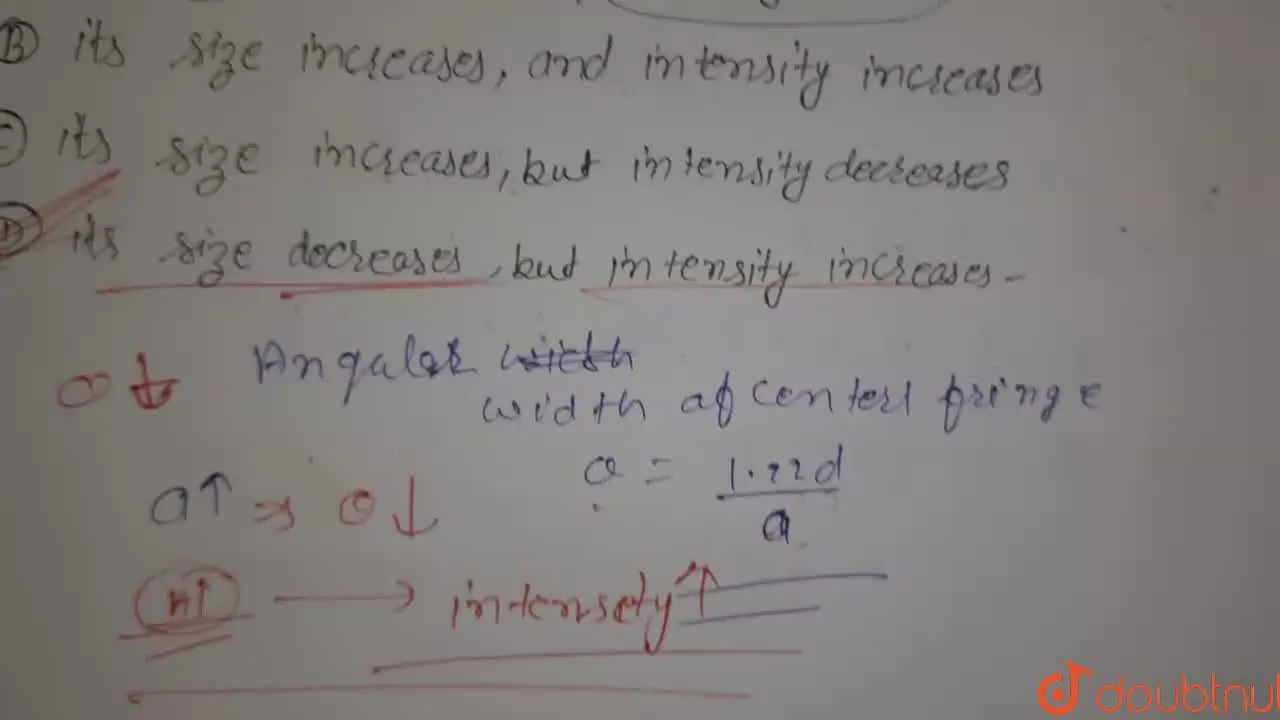 B its size increases, and intensity increases
C its size increases, but intensity decreases
D its size decreases, but intensity increases -
θ ↓ Angular width
width of centerl fringe
θ = 1.22d / a
a↑ ⇒ θ ↓
n↑ → intensety ↑
doubtnut